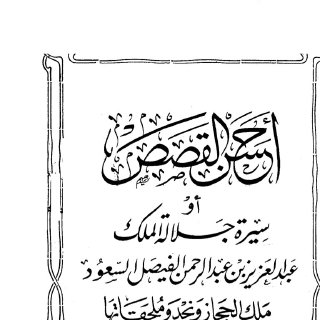 أحسن القصص
أو
سيرة جلالة الملك
عبد العزيز بن عبد الرحمن الفيصل السعود
ملك الحجاز ونجد وملحقاتها